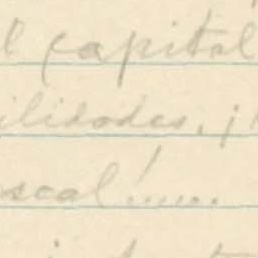 l capital
ilidades, ¡
scal!.....